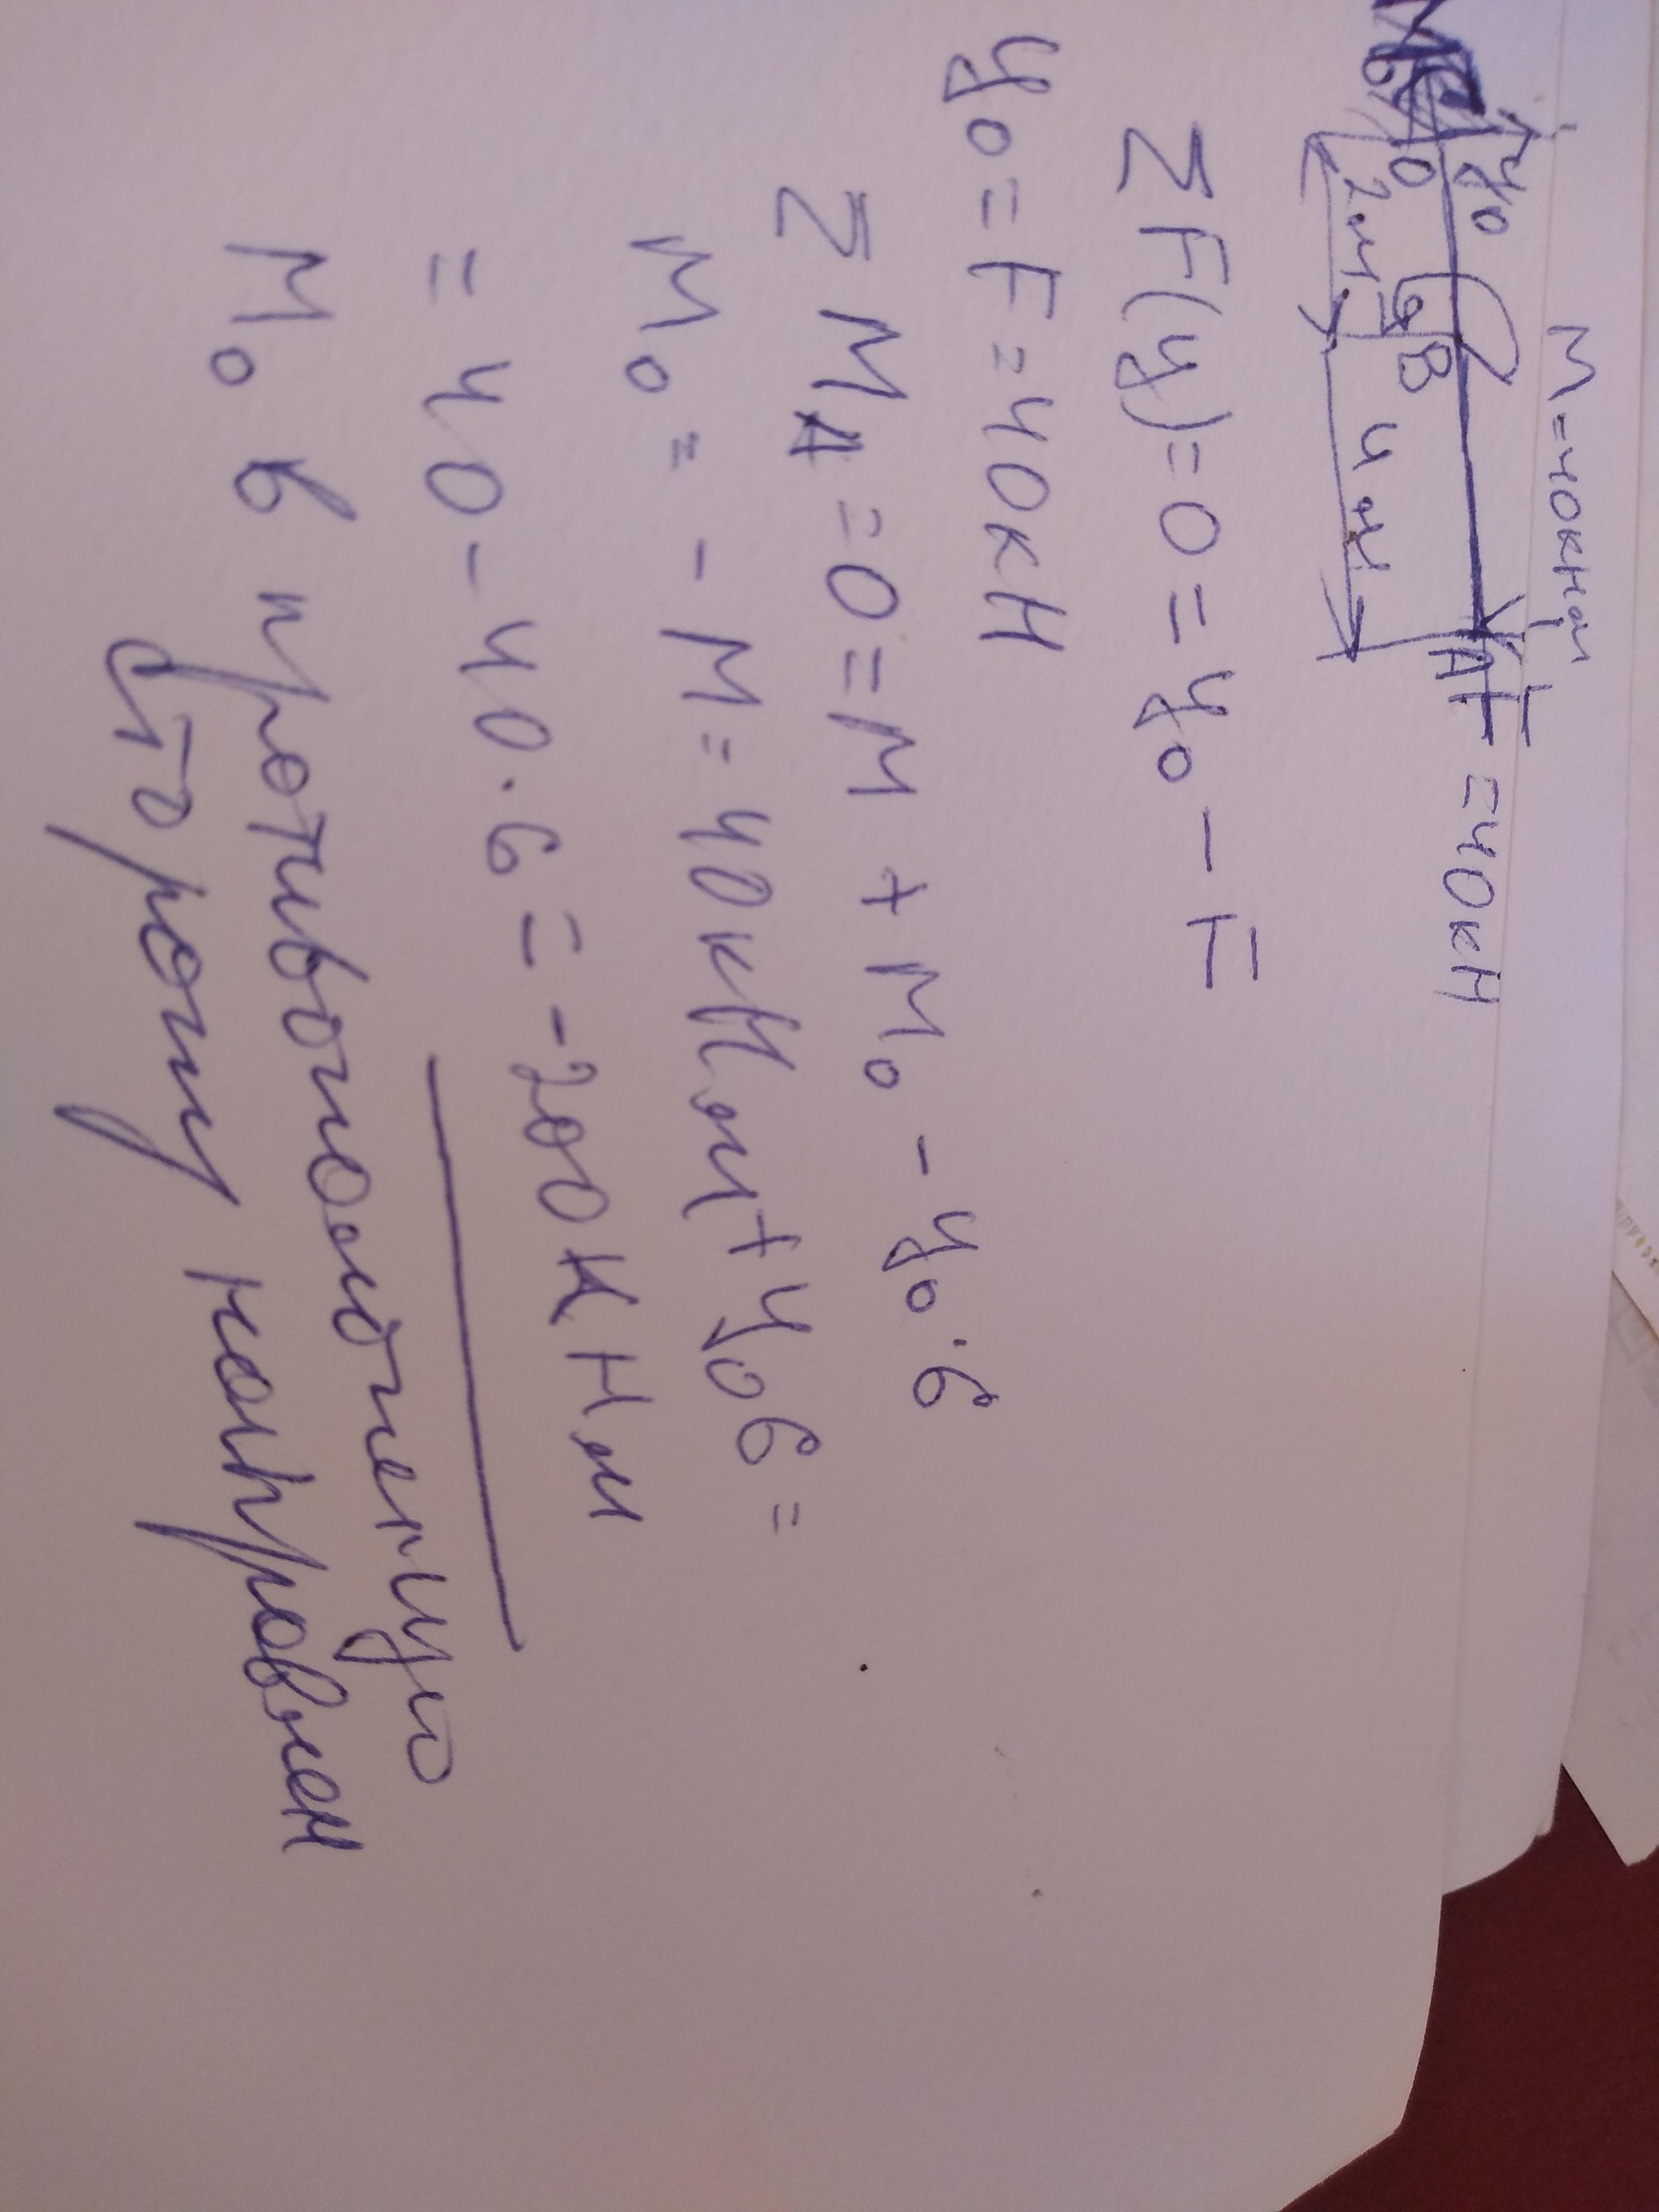 M=40кНм
y₀
F=40кН
O B A
2м 4м
ΣF(y)=0=y₀-F
y₀=F=40кН
ΣM_A=0=M+M₀-y₀·6
M₀=-M=40кНм+y₀6=
=40-40·6=-200кНм
M₀ в противоположную
сторону направлен